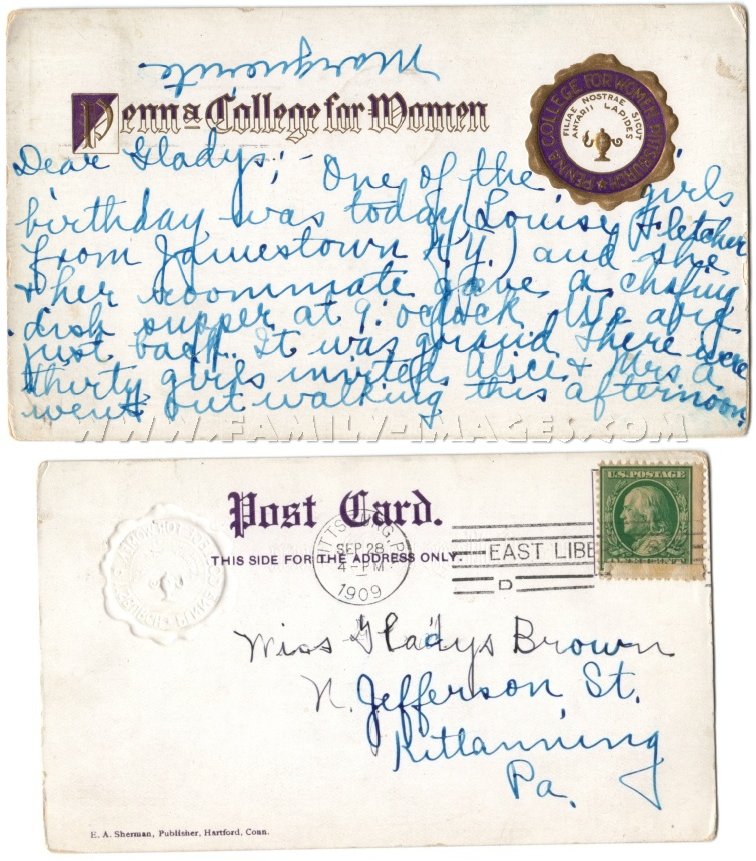 Marguerite.
Penna College for Women
PENNA COLLEGE FOR WOMEN PITTSBURGH
FILIAE NOSTRAE SICUT
ANTARII LAPIDES
Dear Gladys; - One of the girls
birthday was today (Louise Fletcher
from Jamestown N.Y.) and she
& her roommate gave a chafing
dish supper at 9. oclock. We are
just back. It was grand. There were
thirty girls invited. Alice & Mrs A.
went out walking this afternoon.
WWW.FAMILY-IMAGES.COM
Post Card.
THIS SIDE FOR THE ADDRESS ONLY.
PITTSBURG, PA
SEP 28
4-PM
1909
EAST LIBE
D
U.S. POSTAGE
ONE CENT
Miss Gladys Brown
N. Jefferson St.
Kittanning
Pa.
E. A. Sherman, Publisher, Hartford, Conn.